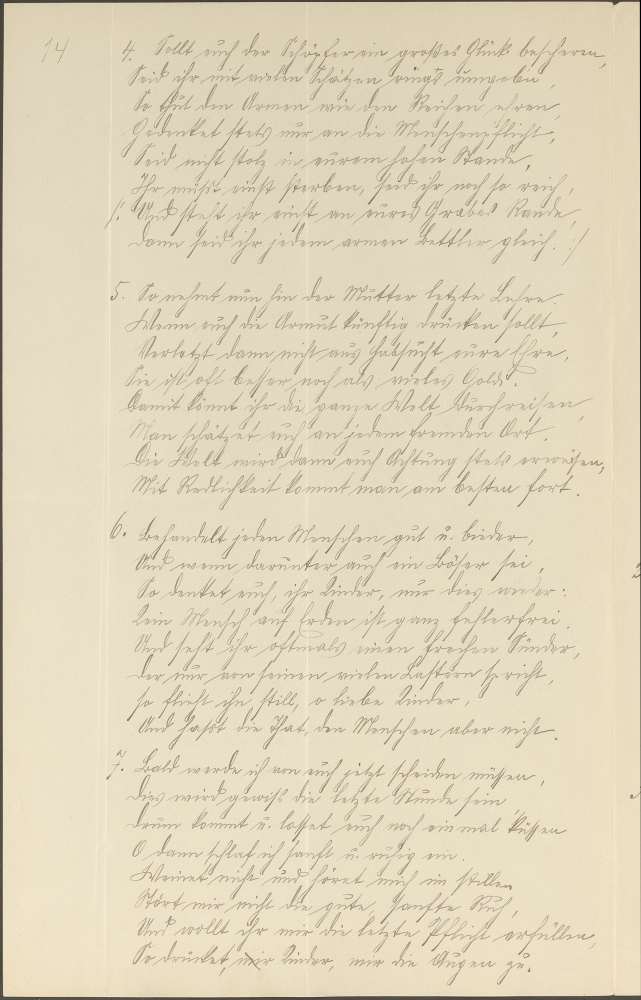 14
4. Sollt euch der Schöpfer ein großes Glück bescheren,
Seid ihr mit vielen Schätzen rings umgeben,
So thut den Armen wie den Reichen ehren,
Gedenket stets nur an die Menschenpflicht,
Seid nicht stolz in eurem hohen Stande,
Ihr müßt einst sterben, seid ihr noch so reich,
/: Und steht ihr einst an eures Grabes Rande,
dann seid ihr jedem armen Bettler gleich. :/
5. So nehmt nun hin der Mutter letzte Lehre.
Wenn euch die Armut künftig drücken sollt,
Verletzt dann nicht aus Habsucht eure Ehre,
Sie ist oft besser noch als vieles Gold.
Damit könnt ihr die ganze Welt durchreisen,
Man schätzet euch an jedem fremden Ort.
Die Welt wird dann euch Achtung stets erweisen,
Mit Redlichkeit kommt man am besten fort.
6. Behandelt jeden Menschen gut u. bieder,
Und wenn darunter auch ein Böser sei,
So denket euch, ihr Kinder, nur dies wieder:
Kein Mensch auf Erden ist ganz fehlerfrei.
Und seht ihr oftmals einen frechen Sünder,
der nur von seinen vielen Lastern spricht,
so flieht ihn still, o liebe Kinder,
Und haßt die That, den Menschen aber nicht.
7. Bald werde ich von euch jetzt scheiden müssen,
dies wird gewiß die letzte Stunde sein
drum kommt u. lasset euch noch einmal küssen
O dann schlaf ich sanft u. ruhig ein.
Weinet nicht und höret mich im stillen
Stört mir nicht die gute, sanfte Ruh,
Und wollt ihr mir die letzte Pflicht erfüllen,
So drücket, mir Kinder, mir die Augen zu.